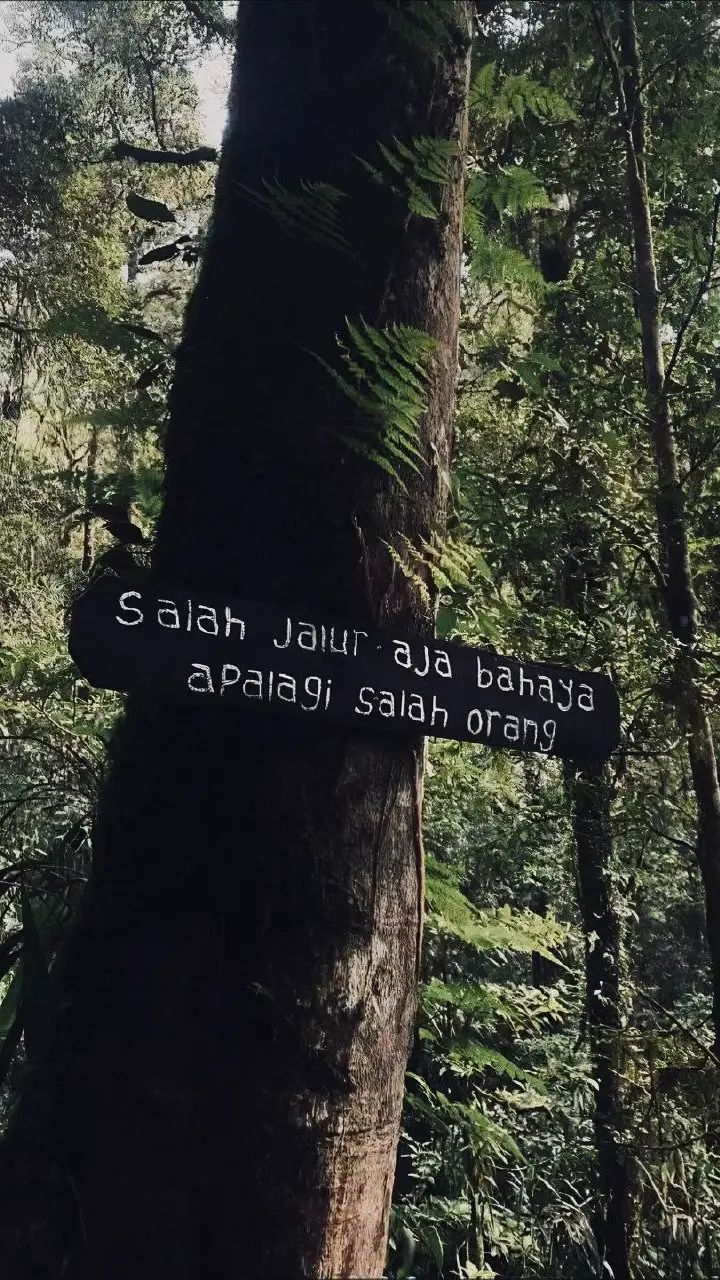 Salah Jalur aja bahaya
apalagi salah orang